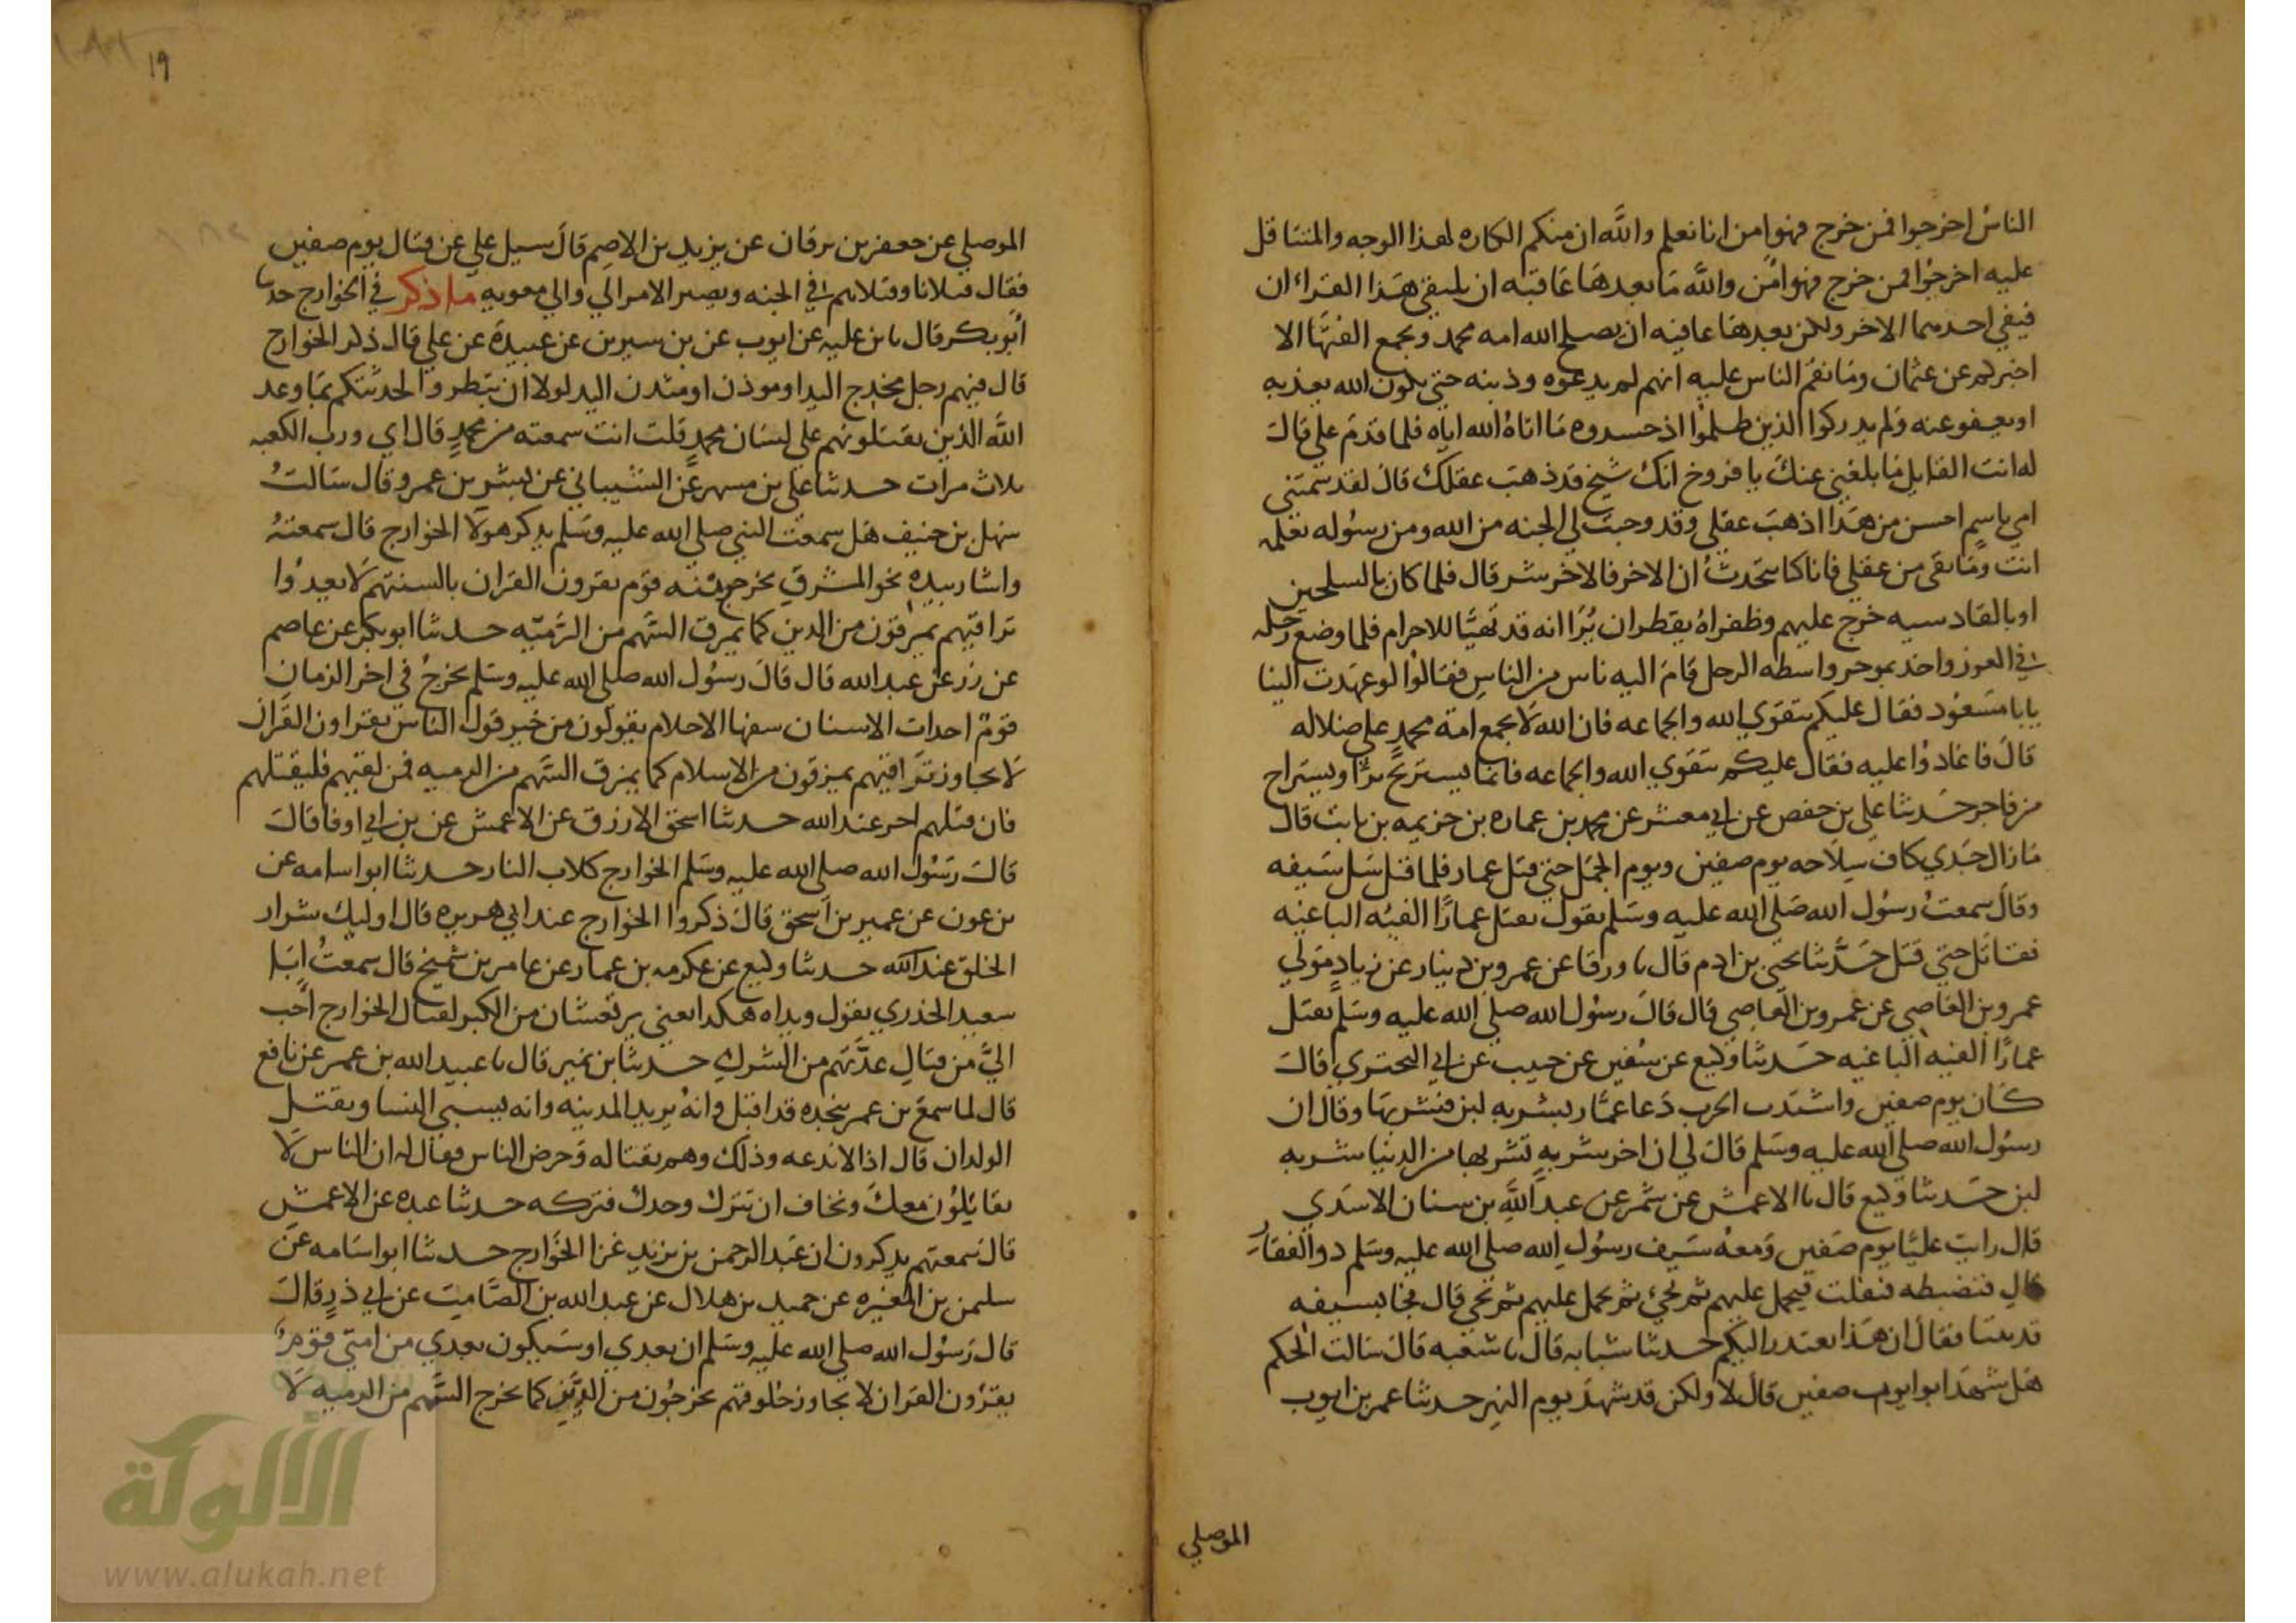 الناس اخرجوا فمن خرج فهو امن انا نعلم والله ان منكم الكاره لهذا الوجه والمتثاقل
عليه اخرجوا فمن خرج فهو امن والله ما بعدها عاقبه ان يلتقي هذا الغراان
فيفي احدهما الاخر ولكن بعدها عافيه ان يصلح الله امه محمد ويجمع الفتها الا
اخبركم عن عثمان وما نقم الناس عليه انهم لم يدعوه وذبنه حتي يكون الله يعذبه
او يعفو عنه ولم يدركوا الذين طلموا اذ حسدوه ما اتاه الله اياه فلما قدم علي قال
له انت القايل ما بلغني عنك يا فروخ انك شيخ قد ذهب عقلك قال لقد سمتني
امي باسم احسن من هذا اذهب عقلي وقد وجبت لي الجنه من الله ومن رسوله تعلمه
انت وما بقي من عقلي فانا كنا نتحدث ان الاخر فالاخر شر قال فلما كان بالسلحين
او بالقادسيه خرج عليهم وظفراه يقطران يرا انه قد تهيا للاحرام فلما وضع رجله
في الغرز واخذ بموخر واسطه الرحل قام اليه ناس من الناس فقالوا لو عهدت الينا
يابا مسعود فقال عليكم بتقوي الله والجماعه فان الله لا يجمع امة محمد علي ضلاله
قال فاعادوا عليه فقال عليكم بتقوي الله والجماعه فانما يستريح برا ويستراح
من فاجر حدثنا علي بن حفص عن ابي معشر عن محمد بن عماره بن خزيمه بن ثابت قال
ما زال جدي كاف سلاحه يوم صفين ويوم الجمل حتي قتل عمار فلما قتل سل سيفه
وقال سمعت رسول الله صلي الله عليه وسلم يقول تقتل عمارا الفيه الباغيه
فقاتل حتي قتل حدثنا يحيي بن ادم قال نا ورقا عن عمرو بن دينار عن زياد مولي
عمرو بن العاصي عن عمرو بن العاصي قال قال رسول الله صلي الله عليه وسلم تقتل
عمارا الفيه الباغيه حدثنا وكيع عن سفين عن حبيب عن ابي البختري قال
كان يوم صفين واشتدت الحرب دعا عمار بشربه لبن فشربها وقال ان
رسول الله صلي الله عليه وسلم قال لي ان اخر شربه تشربها من الدنيا شربه
لبن حدثنا وكيع قال نا الاعمش عن شمر عن عبد الله بن سنان الاسدي
قال رايت عليا يوم صفين ومعه سيف رسول الله صلي الله عليه وسلم ذو الفقار
قال فنضبطه فنفلت فيحمل عليهم ثم نجي ثم يحمل عليهم ثم نجي قال فجا بسيفه
قد تثنا فقال ان هذا يعتذر اليكم حدثنا شبابه قال نا شعبه قال سالت الحكم
هل شهد ابو ايوب صفين قال لا ولكن قد شهد يوم النهر حدثنا عمر بن ايوب
الموصلي
١٩
الموصلي عن جعفر بن برقان عن يزيد بن الاصم قال سيل علي عن قتال يوم صفين
فقال قتلانا وقتلاهم في الجنه ويصير الامر الي والي معويه ما ذكر في الخوارج حدثنا
ابو بكر قال نا بن عليه عن ايوب عن بن سيرين عن عبيدة عن علي قال ذكر الخوارج
قال فيهم رجل مخدج اليد او موذن او مثدن اليد لولا ان تبطروا لحدثتكم بما وعد
الله الذين يقتلونهم علي لسان محمد قلت انت سمعته من محمد قال اي ورب الكعبه
ثلاث مرات حدثنا علي بن مسهر عن الشيباني عن بشير بن عمرو قال سالت
سهل بن حنيف هل سمعت النبي صلي الله عليه وسلم يذكر هولا الخوارج قال سمعته
واشار بيده نحو المشرق يخرج منه قوم يقرون القران بالسنتهم لا يعدوا
تراقيهم يمرقون من الدين كما يمرق السهم من الرميه حدثنا ابو بكر عن عاصم
عن زر عن عبد الله قال قال رسول الله صلي الله عليه وسلم يخرج في اخر الزمان
قوم احداث الاسنان سفها الاحلام يقولون من خير قول الناس يقراون القران
لا يجاوز تراقيهم يمرقون من الاسلام كما يمرق السهم من الرميه فمن لقيهم فليقتلهم
فان قتلهم اجر عند الله حدثنا اسحق الازرق عن الاعمش عن بن ابي اوفا قال
قال رسول الله صلي الله عليه وسلم الخوارج كلاب النار حدثنا ابو اسامه عن
بن عون عن عمير بن اسحق قال ذكروا الخوارج عند ابي هريره قال اوليك شرار
الخلق عند الله حدثنا وكيع عن عكرمه بن عمار عن عاصم بن شميخ قال سمعت ابا
سعيد الخدري يقول ويداه هكذا يعني يرتعشان من الكبر لقتال الخوارج احب
الي من قتال عدتهم من الشرك حدثنا بن نمير قال نا عبيد الله بن عمر عن نافع
قال لما سمع بن عمر بنجده قد اقبل وانه يريد المدينه وانه يسبي النسا ويقتل
الولدان قال اذا لا ندعه وذلك وهم بقتاله وحرض الناس فقال له ان الناس لا
يقاتلون معك ونخاف ان تترك وحدك فتركه حدثنا عبده عن الاعمش
قال سمعتهم يذكرون ان عبد الرحمن بن يزيد غزا الخوارج حدثنا ابو اسامه عن
سليمن بن المغيره عن حميد بن هلال عن عبد الله بن الصامت عن ابي ذر قال
قال رسول الله صلي الله عليه وسلم ان بعدي او سيكون بعدي من امتي قوم
يقرون القران لا يجاوز حلوقهم يخرجون من الدين كما يخرج السهم من الرميه لا
الألوكة
www.alukah.net